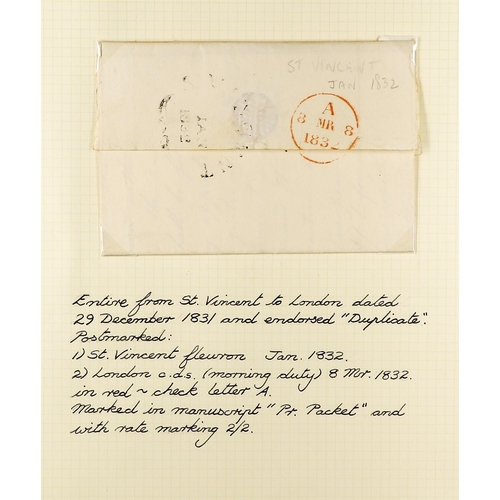 ST VINCENT
JAN 1832
A
8 MR 8
1832
JAN
1832
Entire from St. Vincent to London dated
29 December 1831 and endorsed "Duplicate".
Postmarked:
1) St. Vincent fleuron Jan. 1832.
2) London c.d.s. (morning duty) 8 Mr. 1832.
in red ~ check letter A.
Marked in manuscript "Pr. Packet" and
with rate marking 2/2.